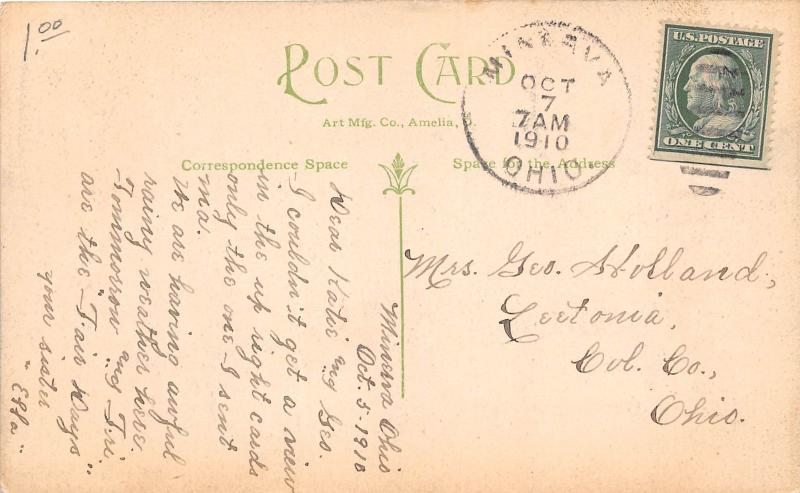 1.00
POST CARD
Art Mfg. Co., Amelia, O.
MINERVA
OCT
7
7 AM
1910
OHIO.
U.S. POSTAGE
ONE CENT
Correspondence Space
Space for the Address
Minerva Ohio
Oct. 5-1910
Dear Katie and Geo.
I couldn't get a view
in the up right cards
only the one I sent
ma.
We are having awful
rainy weather here.
Tommorrow and Fri.
are the "Fair Days"
your sister
"Effa"
Mrs. Geo. Holland,
Leetonia,
Col. Co.,
Ohio.